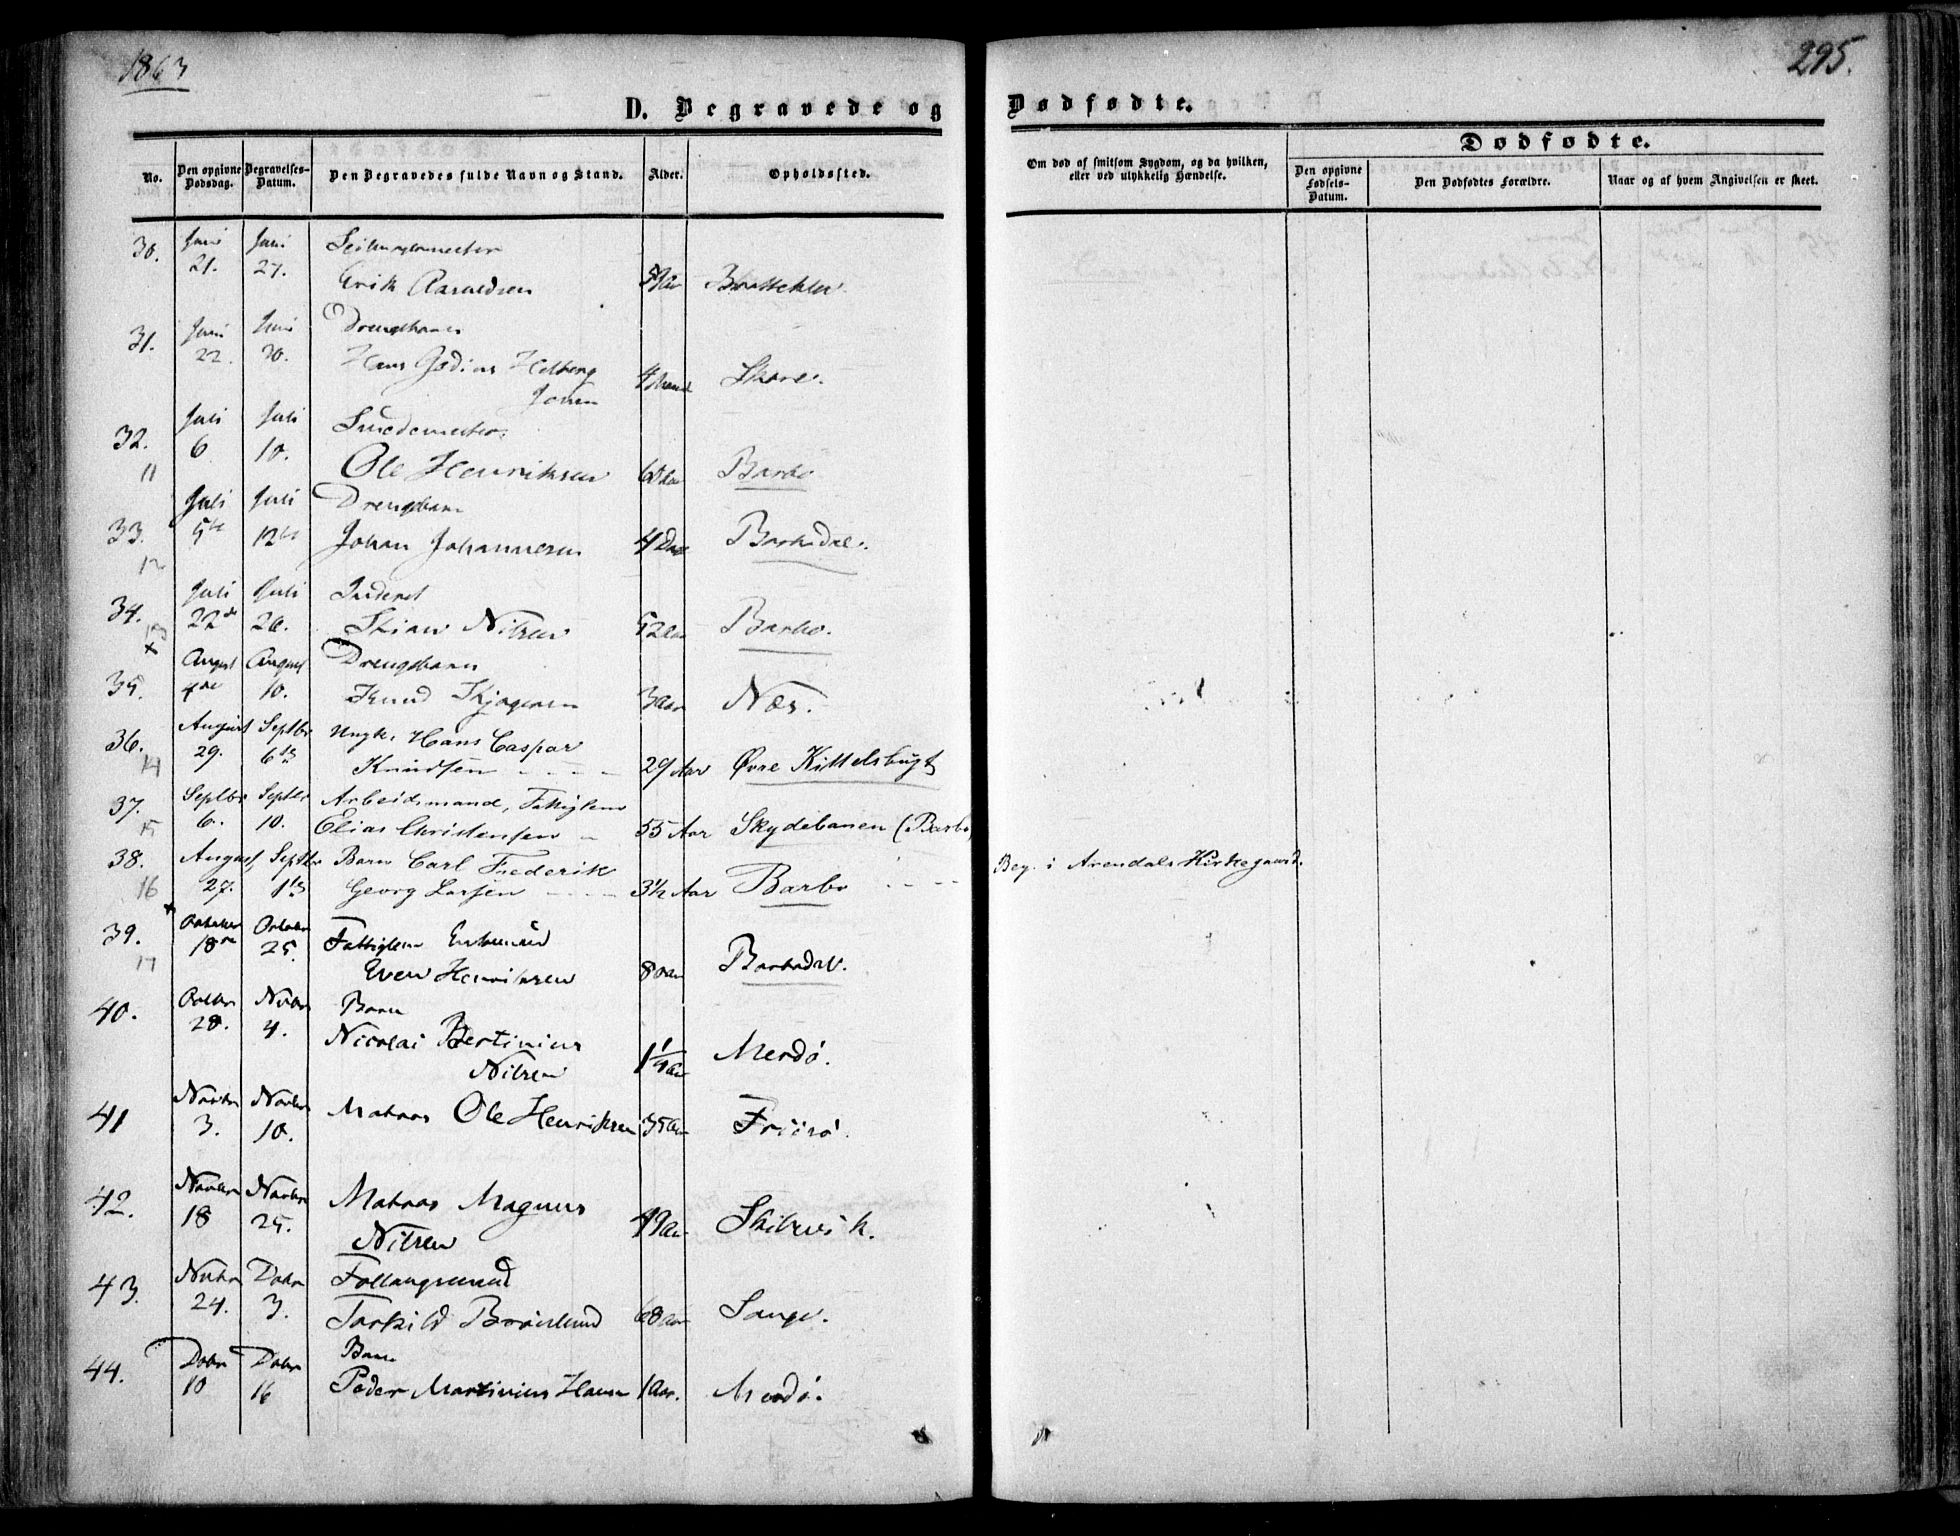 1863
295.
D. Begravede og Dødfødte.
No.
Den opgivne Dødsdag.
Begravelses-Datum.
Den Begravedes fulde Navn og Stand.
Alder.
Opholdssted.
Om død af smitsom Sygdom, og da hvilken, eller ved ulykkelig Hændelse.
Dødfødte.
Den opgivne Fødsels-Datum.
Den Dødfødtes Forældre.
Naar og af hvem Angivelsen er skeet.
30. Juni Juni
21. 27. Erik
31. Juni Juni Drengebarn
22. 30. Hans
4
32. Juli Juli Smedemester
6 10. Ole Henriksen Barbo
11
33. Juli Juli Drengebarn
5te 12te Johan Johannesen 4 Dage Barbodal.
12
34. Juli Juli Inderst
22de 26. Nilsen 52 Aar Barbo.
13
35. August August Drengebarn
4de 10. Knud 3 Aar Næs.
36. August Septbr Ungk. Hans Caspar
29. 6te Knudsen 29 Aar Øvre Kittelsbugt
14
37. Septbr Septbr Arbeidsmand, Fattiglem
6. 10. Elias Christensen 55 Aar Skydebanen (Barbo)
15
38. August, Septbr Barn Carl Frederik
27. 1te Georg Larsen 3½ Aar Barbo Beg. i Arendals Kirkegaard.
16
39. October October Fattiglem Enkemand
18de 25. Even Henriksen 80 Aar Barbodal.
17
40. Octbr Novbr Barn
28. 4. Nicolai Bertinius
Nilsen 1¼ Aar Merdø.
41 Novbr Novbr Matros Ole Henriksen 35 Aar
3. 10.
42. Novbr Novbr Matros Magnus
18 25. Nilsen 49 Aar Skilsvik.
43. Novbr Dcbr
24. 3. Torkild 68 Aar Songe.
44. Dcbr Dcbr Barn
10 16 Peder Martinius Hansen 1 Aar. Merdø.